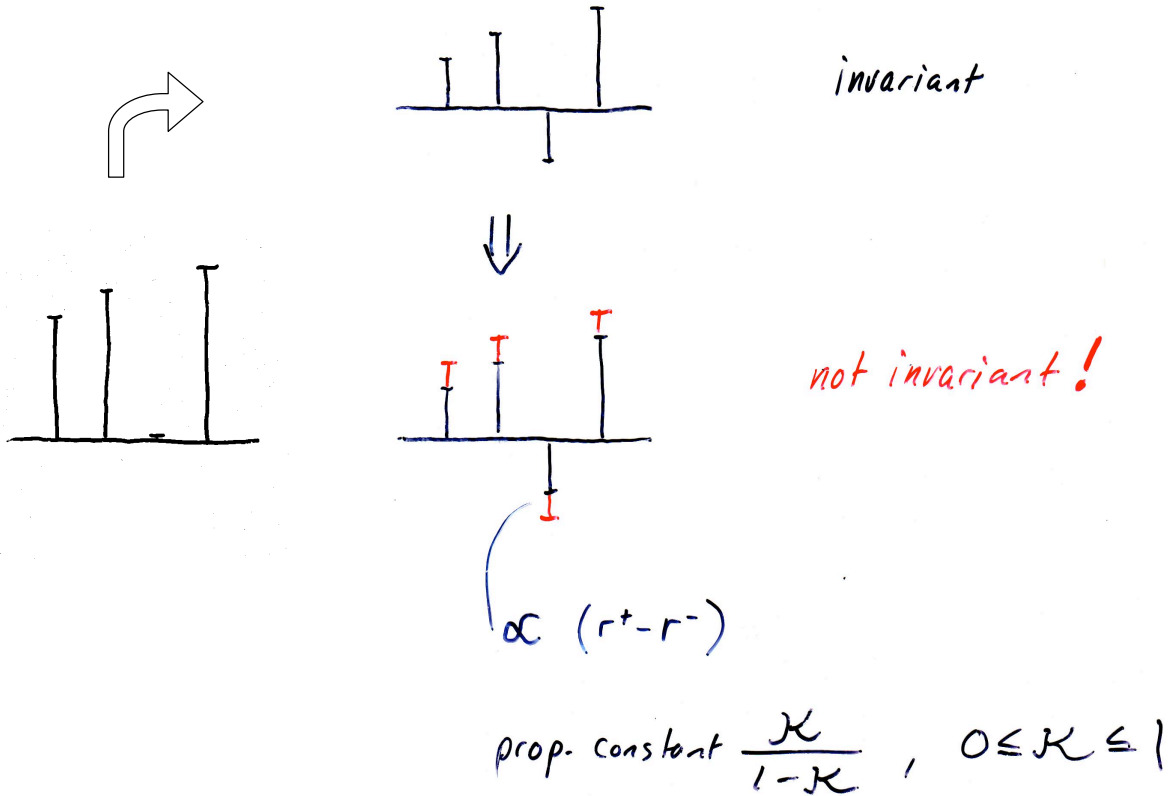 invariant
not invariant!
∝ (r⁺-r⁻)
prop. constant K/(1-K) , 0≤K≤1